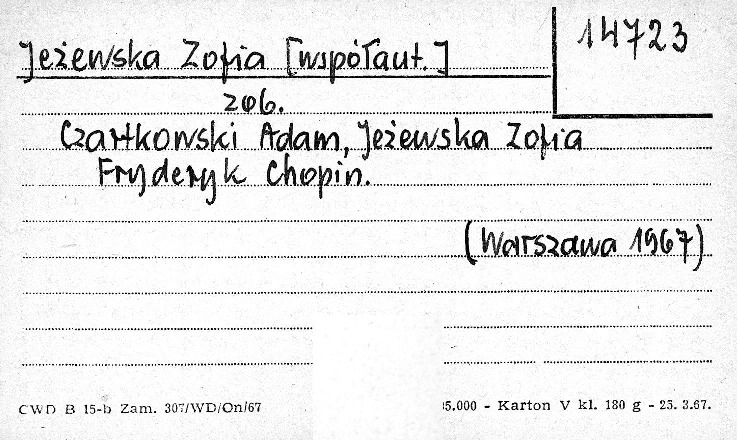 14723
Jeżewska Zofia [współaut.]
zob.
Czartkowski Adam, Jeżewska Zofia
Fryderyk Chopin.
(Warszawa 1967)
CWD B 15-b Zam. 307/WD/On/67
5.000 - Karton V kl. 180 g - 25. 3.67.